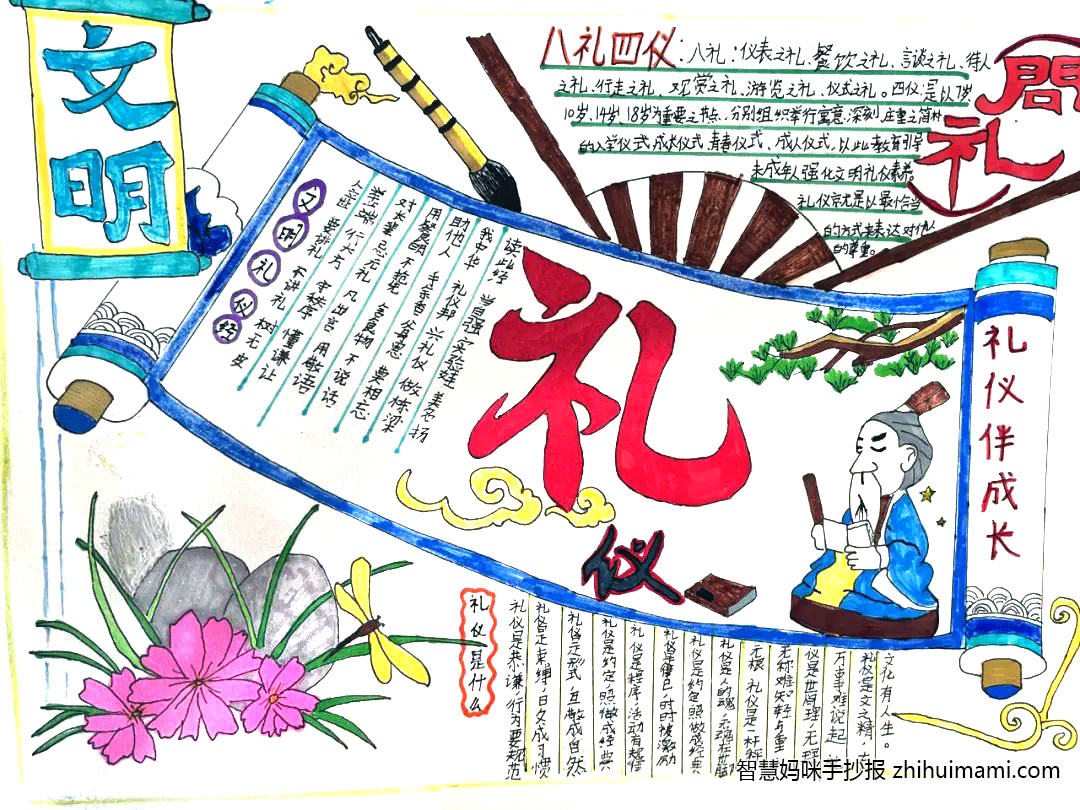 文明
八礼四仪:八礼:仪表之礼、餐饮之礼、言谈之礼、待人
之礼、行走之礼、观赏之礼、游览之礼、仪式之礼。四仪:是以7岁、
10岁、14岁、18岁为重要之节点,分别组织举行寓意深刻、庄重之简朴
的入学仪式、成长仪式、青春仪式、成人仪式,以此教育引导
未成年人强化文明礼仪素养。
礼仪宗尤是以最恰当
的方式来表达对他人
的尊重。
問礼
读此经 当自强 实验娃 美名扬
我中华 礼仪邦 兴礼仪 做栋梁
助他人 手余香 答自思 莫相忘
用餐时 不挑宪 食见物 不说话
对长辈 忌无礼 凡出言 用敬语
举止端 行大方 守秩序 懂谦让
人立世 要讲礼 不讲礼 树无皮
文明礼仪经
礼
仪
礼仪伴成长
文化有人生。
礼仪是文之精,
万事难说起
仪是世间理,无理
无称难知轻与重
无根 礼仪是一杆秤
礼仪是人的魂,无魂在世
礼仪是约定照做成经典
礼仪是律己,时时被激励
礼仪是程序,活动有规律
礼仪是约定,照做成经典
礼仪是形式,互敬成自然
礼仪是束缚,日久成习惯
礼仪是恭谦,行为要规范
礼仪是什么
智慧妈咪手抄报 zhihuimami.com